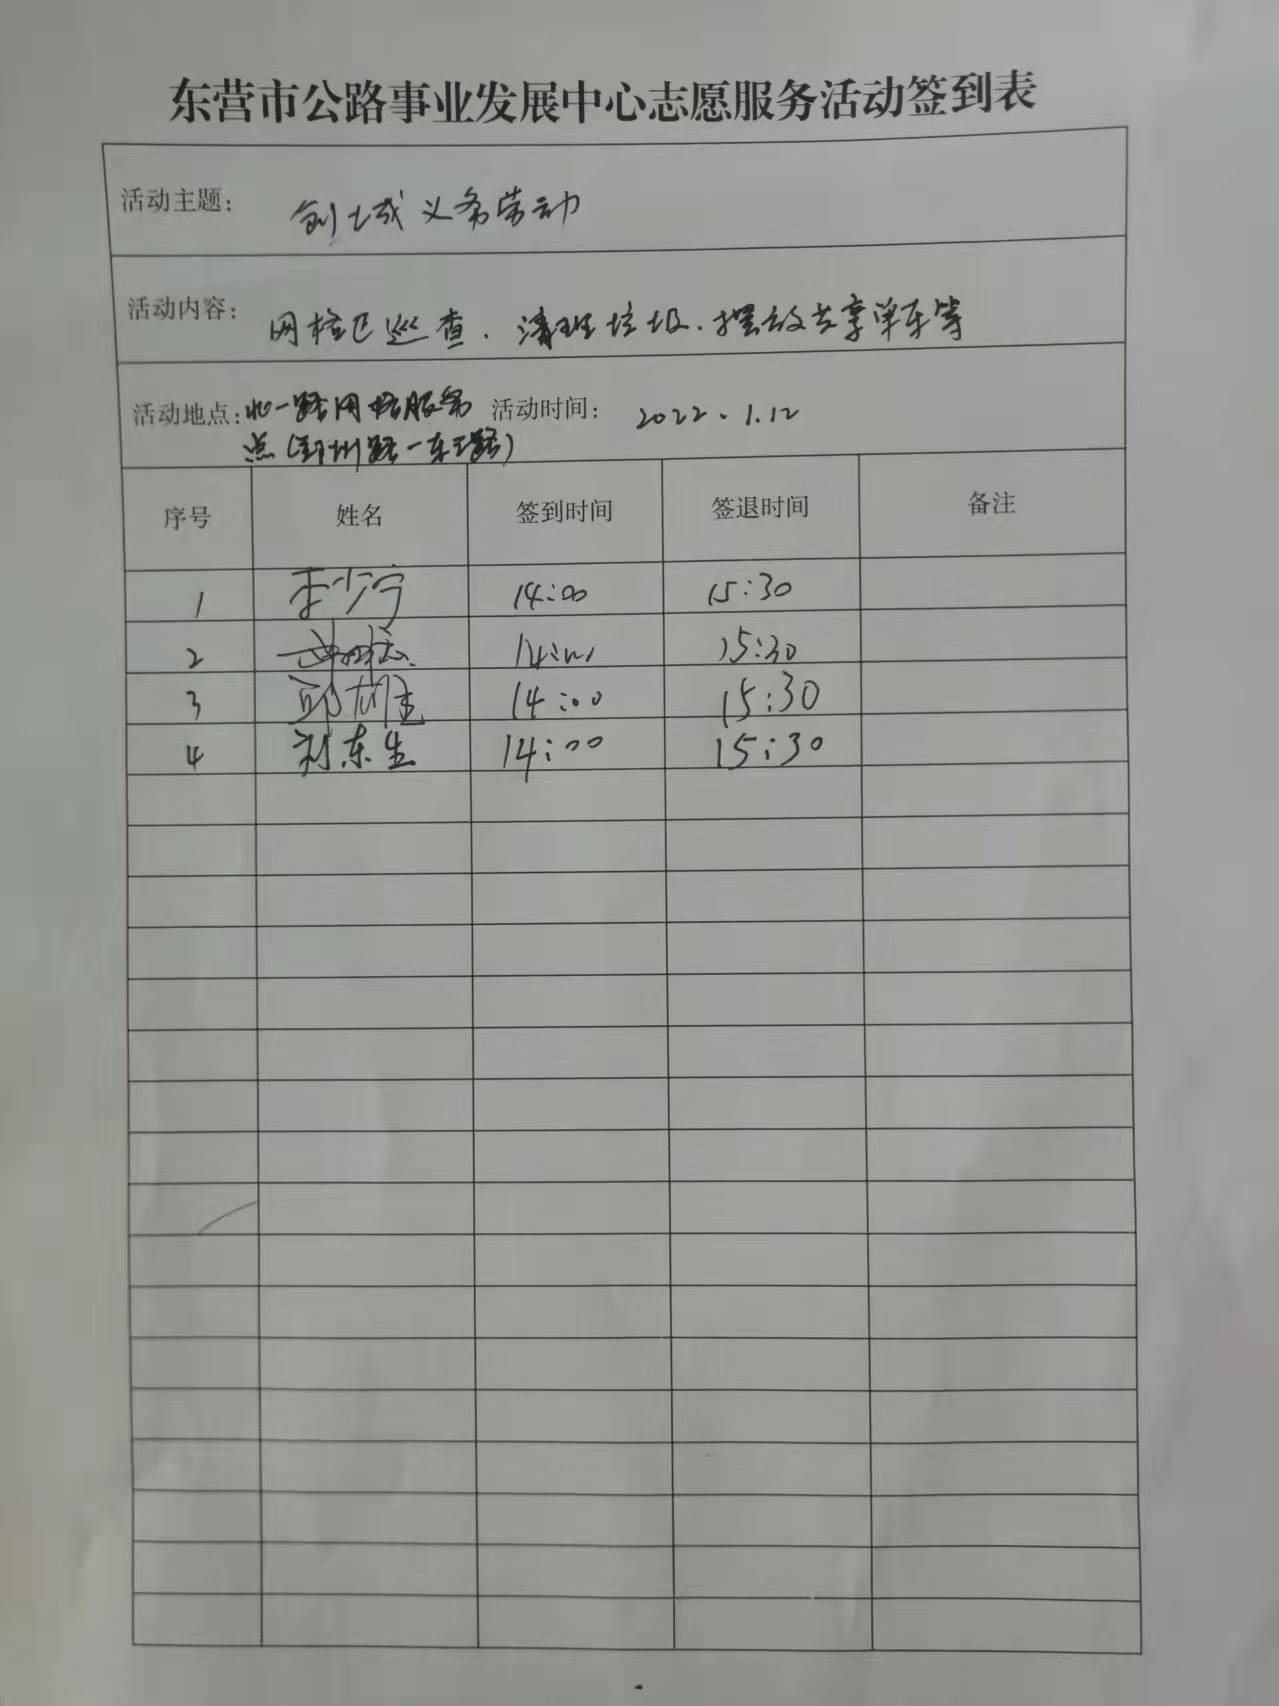 东营市公路事业发展中心志愿服务活动签到表
活动主题: 创城义务劳动
活动内容: 网格区巡查、清理垃圾、摆放共享单车等
活动地点: 北一路网格服务 活动时间: 2022.1.12
点(郑州路—东三路)
序号 姓名 签到时间 签退时间 备注
1 李少宁 14:00 15:30
2 14:00 15:30
3 邱树生 14:00 15:30
4 刘东生 14:00 15:30